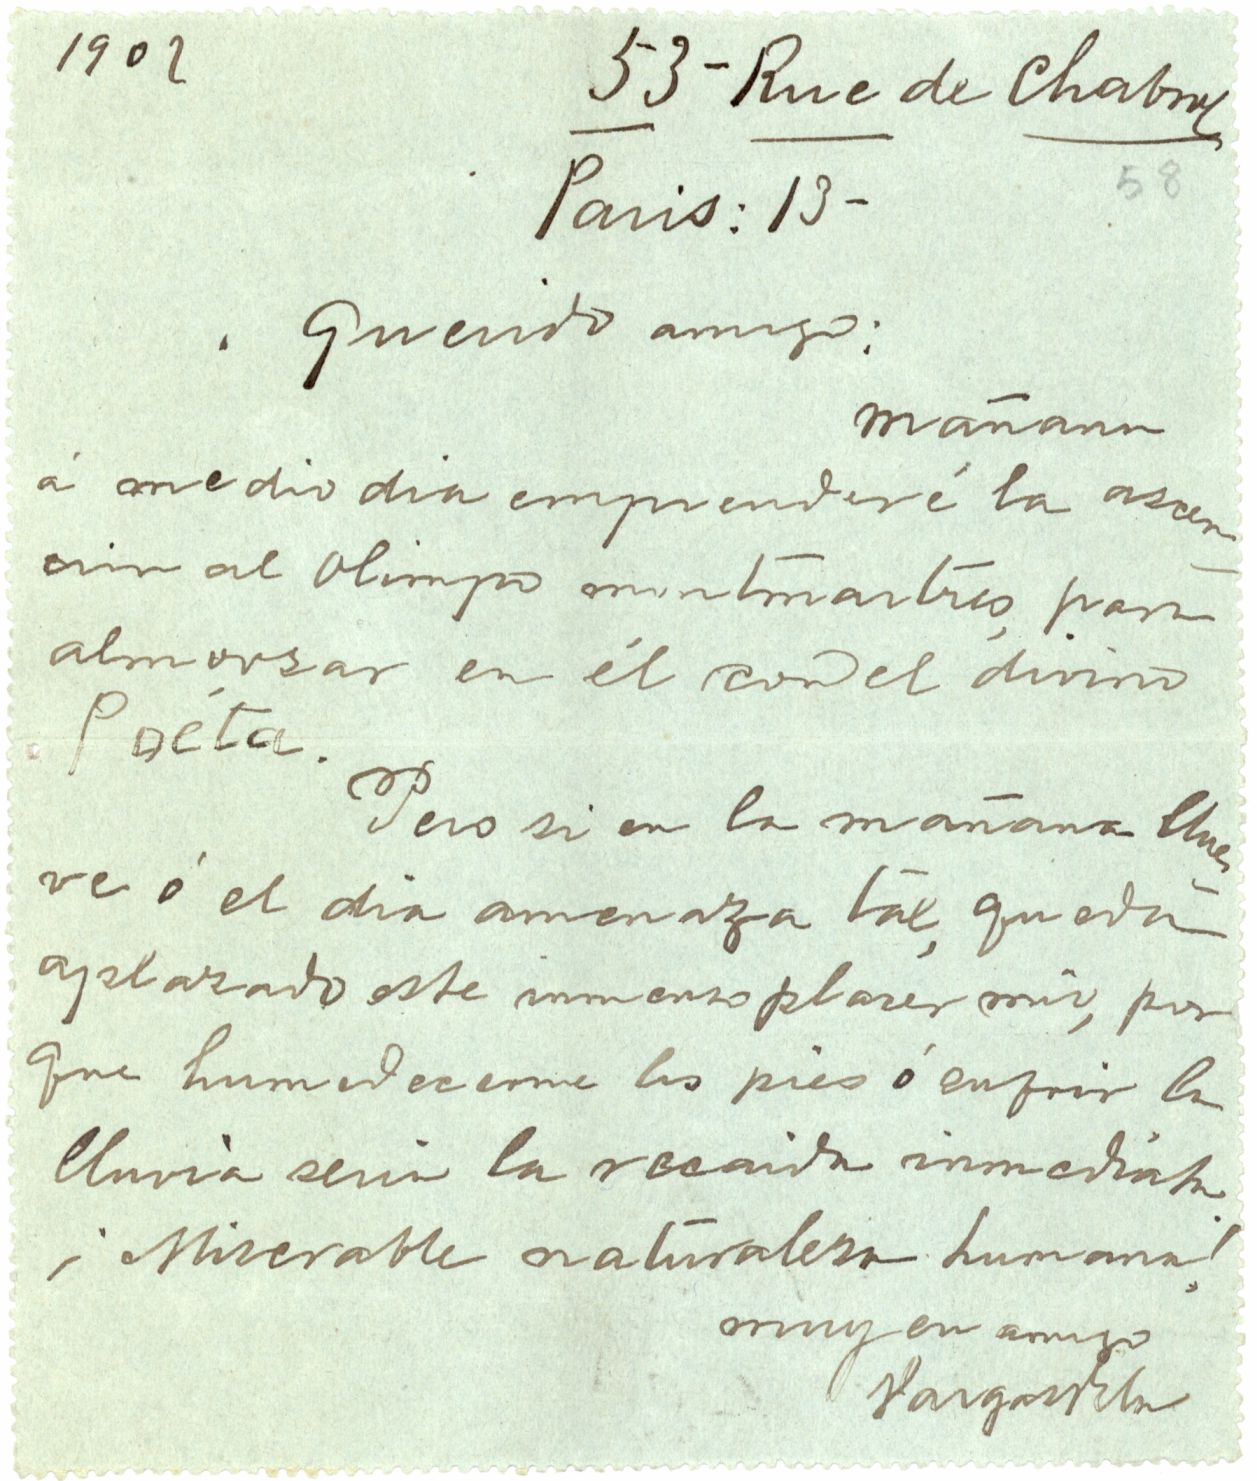 1902
53-Rue de Chabrol
58
Paris: 13-
Querido amigo:
mañana
á medio dia emprenderé la ascen
cion al Olimpo montmartrés, para
almorzar en él con el divino
Poéta.
Pero si en la mañana llue
ve ó el dia amenaza tal, queda
aplazado este inmenso placer mio, por
que humedecerme los pies ó sufrir la
lluvia seria la recaida inmediata.
¡Miserable naturaleza humana!
muy su amigo
Vargas Vila